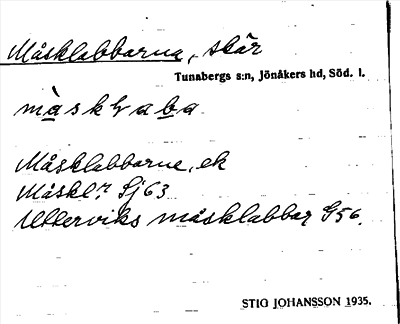 Måsklabbarna, skär
Tunabergs s:n, Jönåkers hd, Söd. l.
måsklaba
Måsklabbarne, ek
Måskl. Sj 63
Utterviks måsklabbar G56.
STIG JOHANSSON 1935.